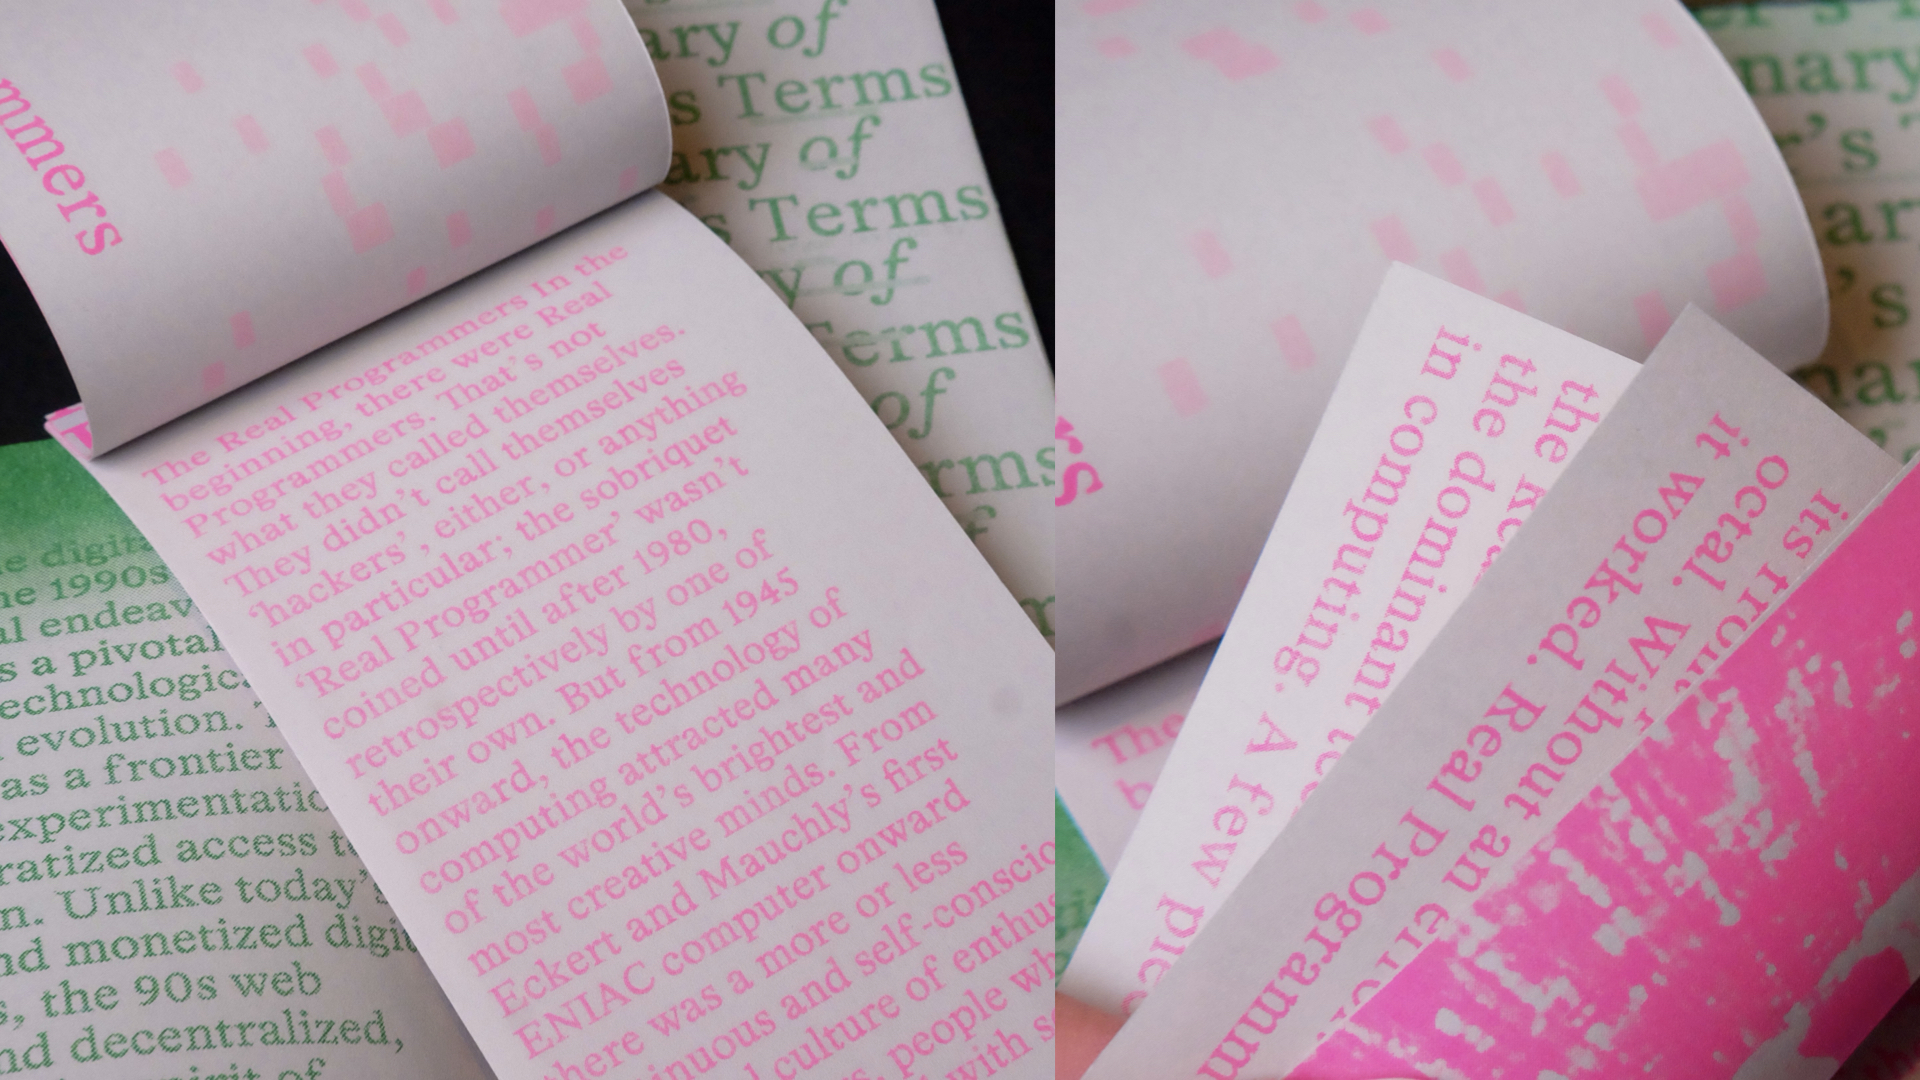 mmers
ary of
s Terms
ary of
's Terms
y of
Terms
of
rms
of
The Real Programmers In the
beginning, there were Real
Programmers. That's not
what they called themselves.
They didn't call themselves
'hackers', either, or anything
in particular; the sobriquet
'Real Programmer' wasn't
coined until after 1980,
retrospectively by one of
their own. But from 1945
onward, the technology of
computing attracted many
of the world's brightest and
most creative minds. From
Eckert and Mauchly's first
ENIAC computer onward
there was a more or less
inuous and self-conscio
culture of enthus
s, people wh
with s
e digit
he 1990s
al endeav
s a pivotal
echnologic
evolution.
as a frontier
experimentatio
ratized access t
n. Unlike today's
nd monetized digit
s, the 90s web
nd decentralized,
spirit of
er's
nary
r's
ar
's
nar
rs
The
b
the
the dominant
in computing. A few pie
its
octal. Without an
it worked. Real Programm